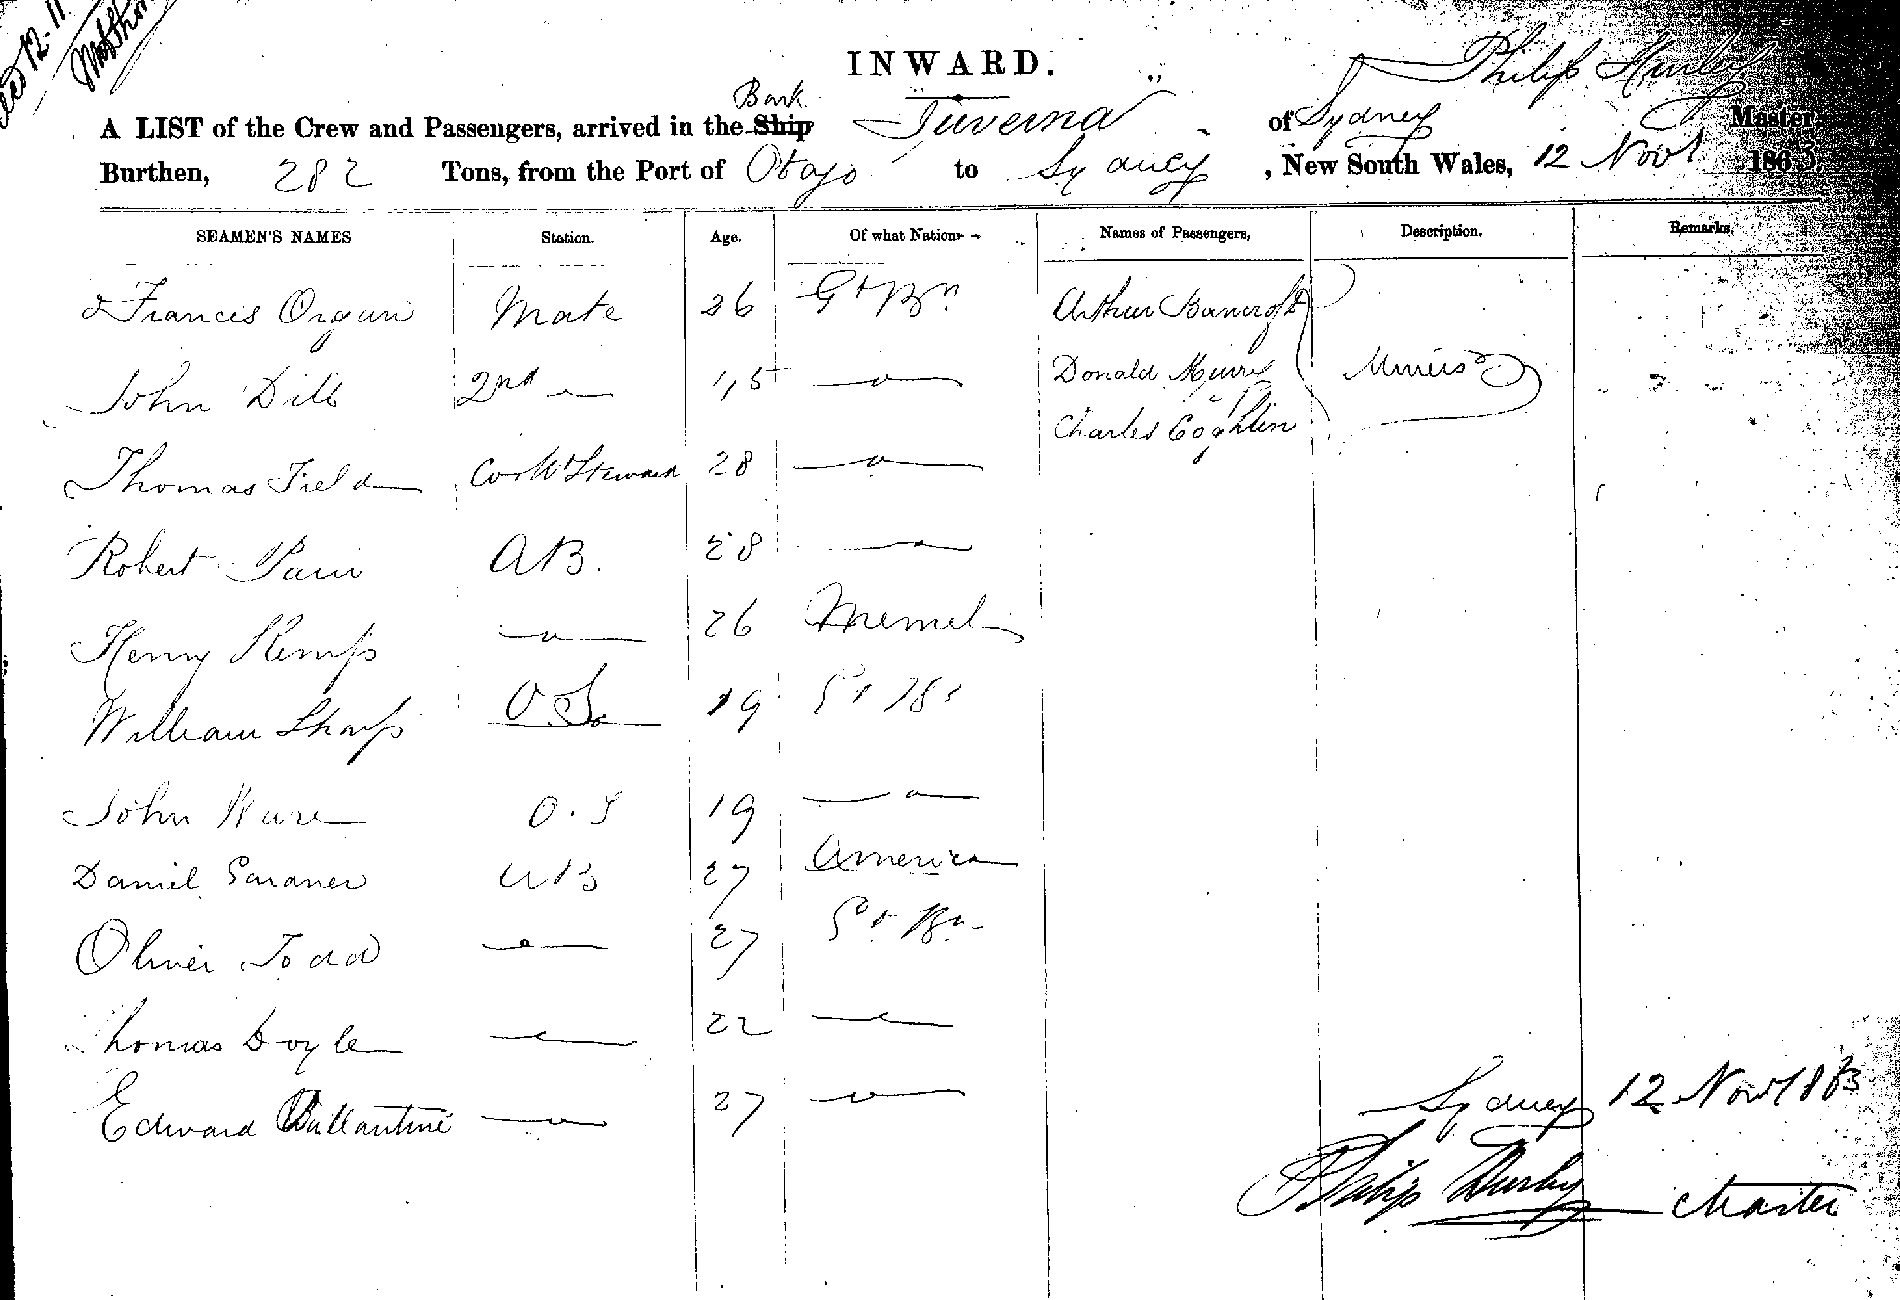 INWARD.
Philip
Bark
A LIST of the Crew and Passengers, arrived in the Ship " Juverna " of Sydney Master
Burthen, 282 Tons, from the Port of Otago to Sydney, New South Wales, 12 Novr 1863
SEAMEN'S NAMES Station. Age. Of what Nation Names of Passengers, Description. Remarks,
Francis Organ Mate 26 Gt Bn Arthur Bancroft
John Dill 2nd —〃— —〃— Donald Murry Miners
Charles Coghlin
Thomas Field Cook & Steward 28 —〃—
Robert Pain AB. 28 —〃—
Henry Kemp —〃— 26 Memel
William Sharp O.S. 19 Gt Bn
John Ware O.S 19 —〃—
Daniel Gardner AB 27 America
Oliver Todd —〃— 27 Gt Bn
Thomas Doyle —〃— 22 —〃—
Edward Ballantine —〃— 27 —〃—
Sydney 12 Novr 1863
Philip Master